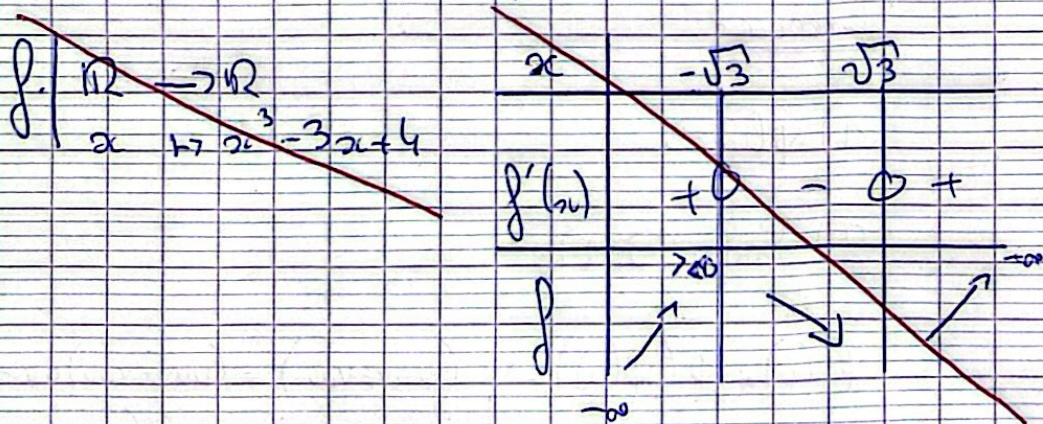 f: | ℝ → ℝ
x ↦ x³ - 3x + 4
x -√3 √3
f'(x) + 0 - 0 +
f -∞ ↗ ↘ ↗ +∞